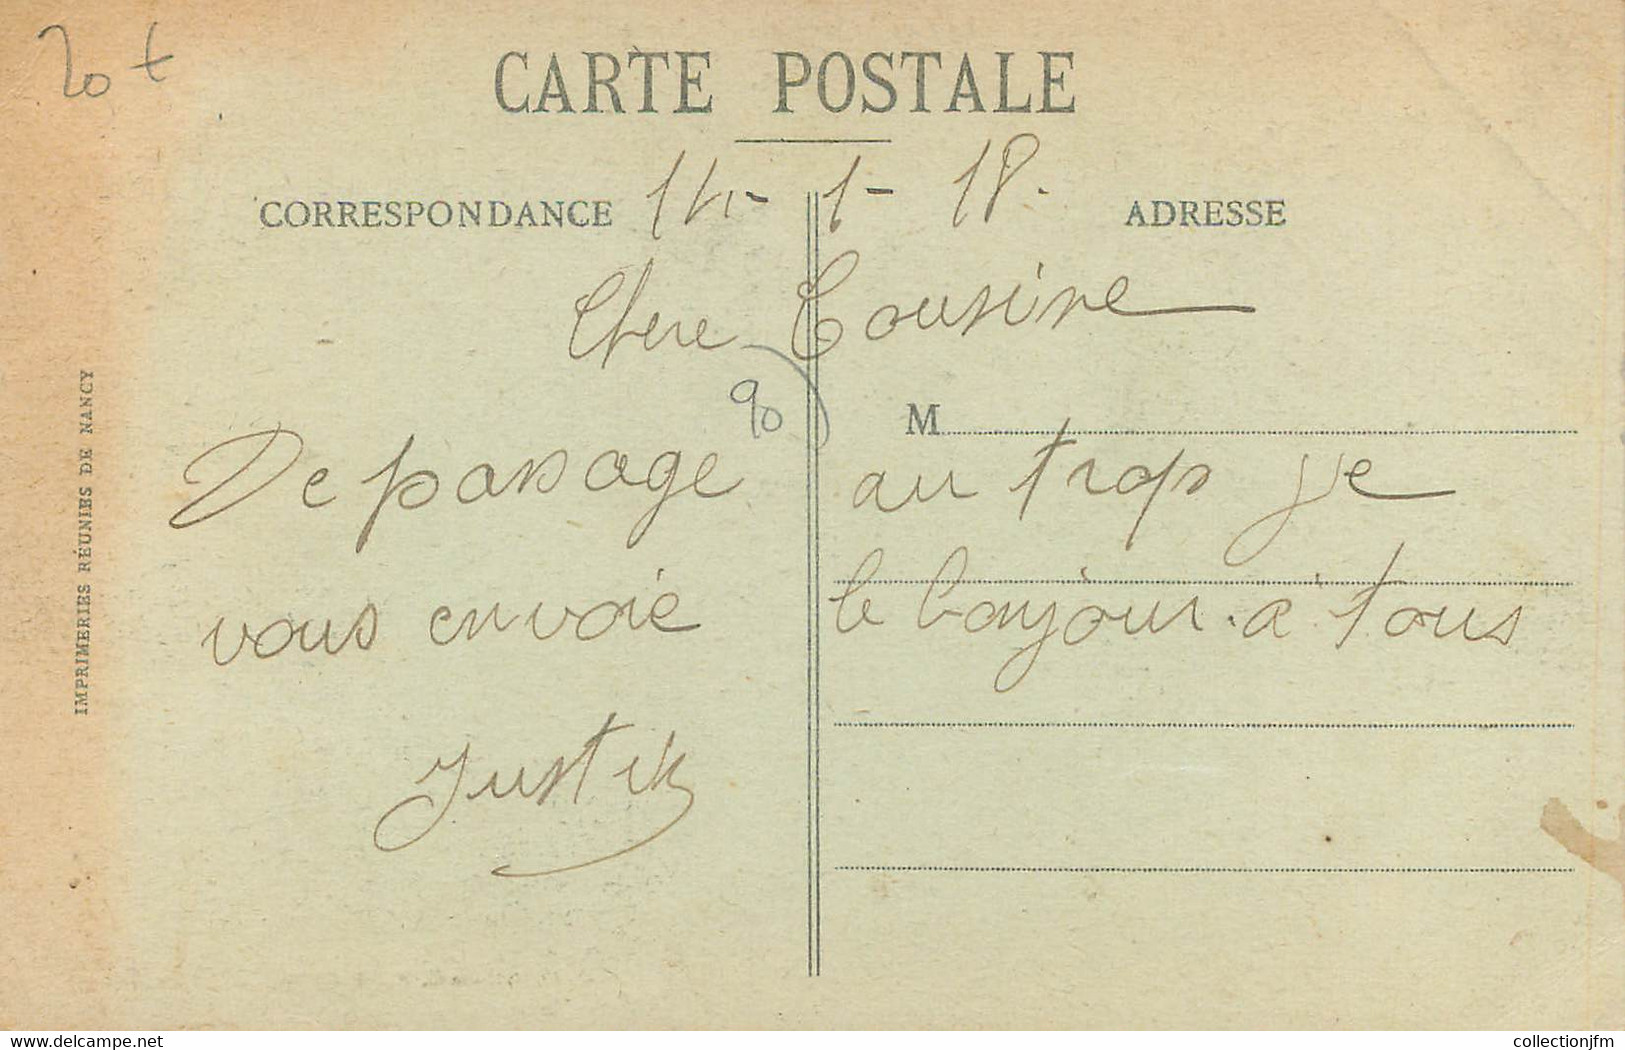 20 t
CARTE POSTALE
CORRESPONDANCE 14-1-18. ADRESSE
Chere Cousine
90
M
De passage au trops je
vous envoie le bonjour a tous
Justin
IMPRIMERIES RÉUNIES DE NANCY
www.delcampe.net
collectionjfm